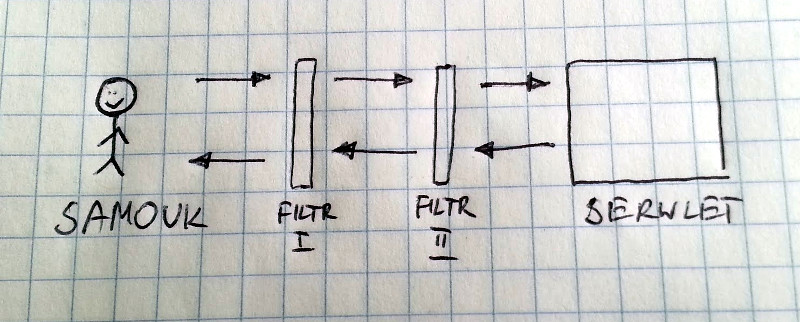 SAMOUK
FILTR
I
FILTR
II
SERWLET